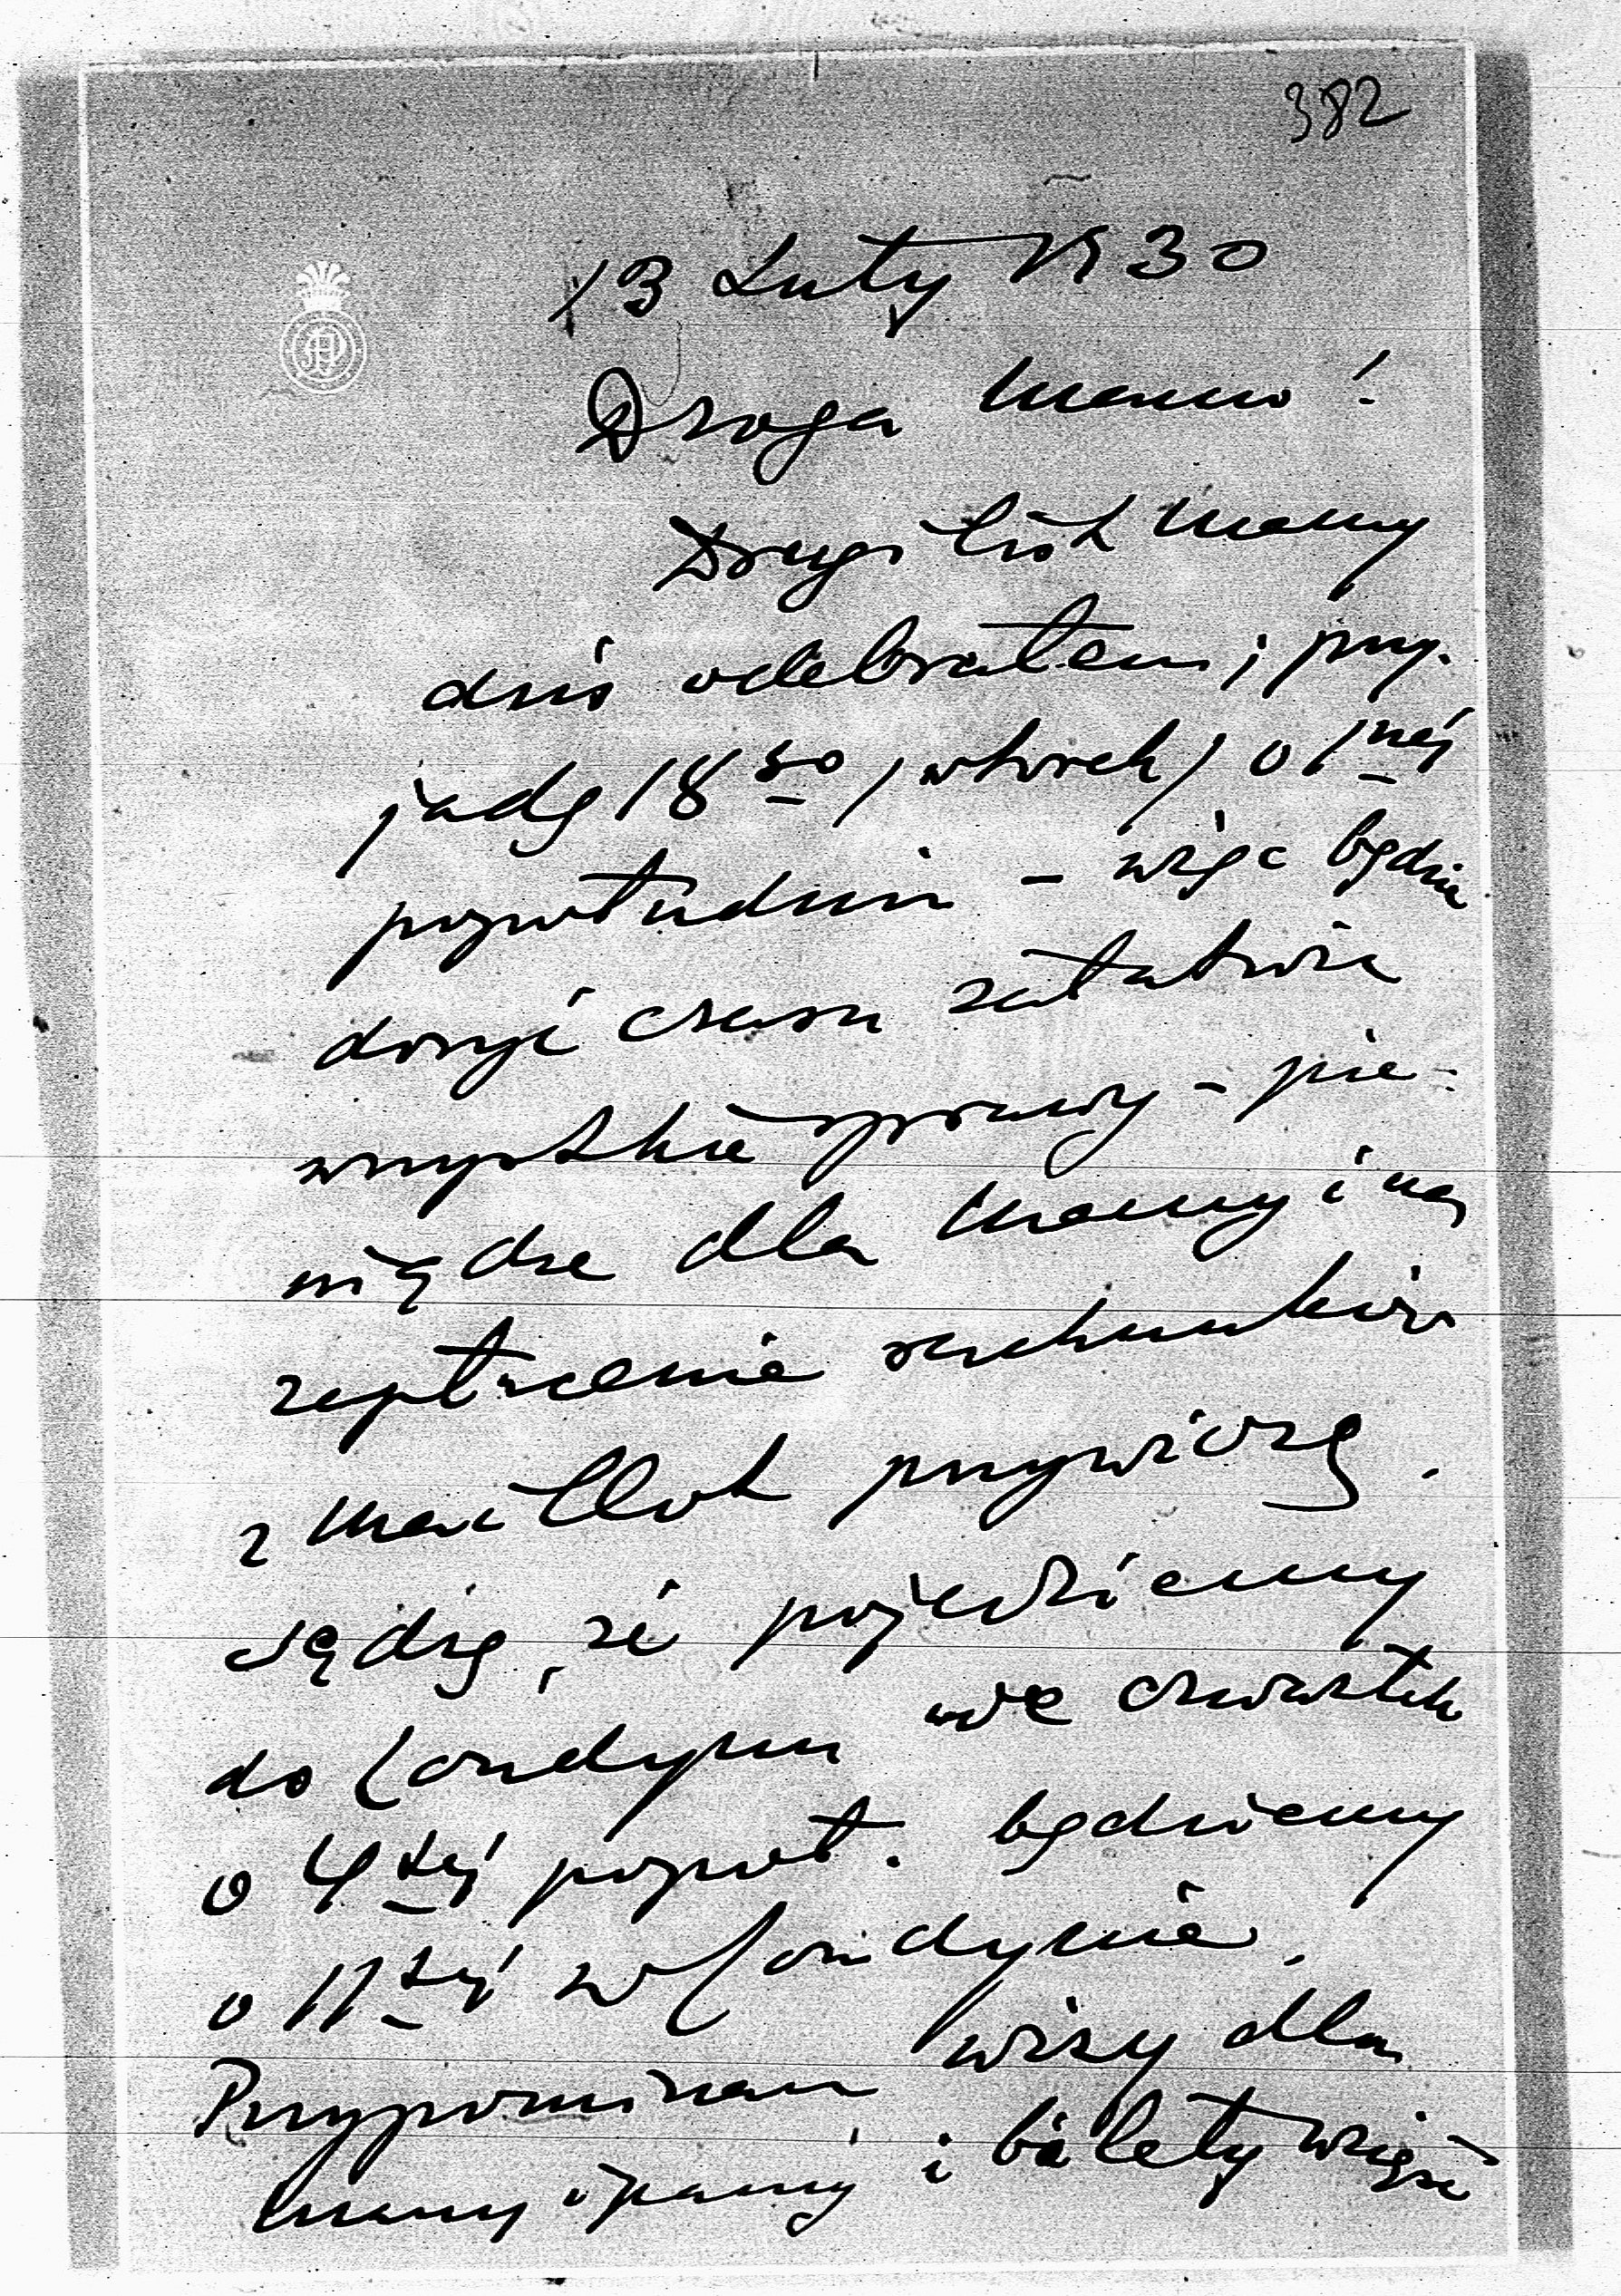 382
13 Luty 1930
Droga Mamo!
Drugi list Mamy
dziś odebrałem i przy-
jadę 18go (wtorek) o 1nej
popołudniu – więc będzie
dosyć czasu załatwić
wszystkie sprawy – pie-
niądze dla Mamy i na
zapłacenie rachunków
z Maillot przywiozę.
Sądzę, że pojedziemy
do Londynu we czwartek
o 4tej popoł. będziemy
o 11tej w Londynie.
Przypominam wizy dla
Mamy i Panny i bilety wziąść